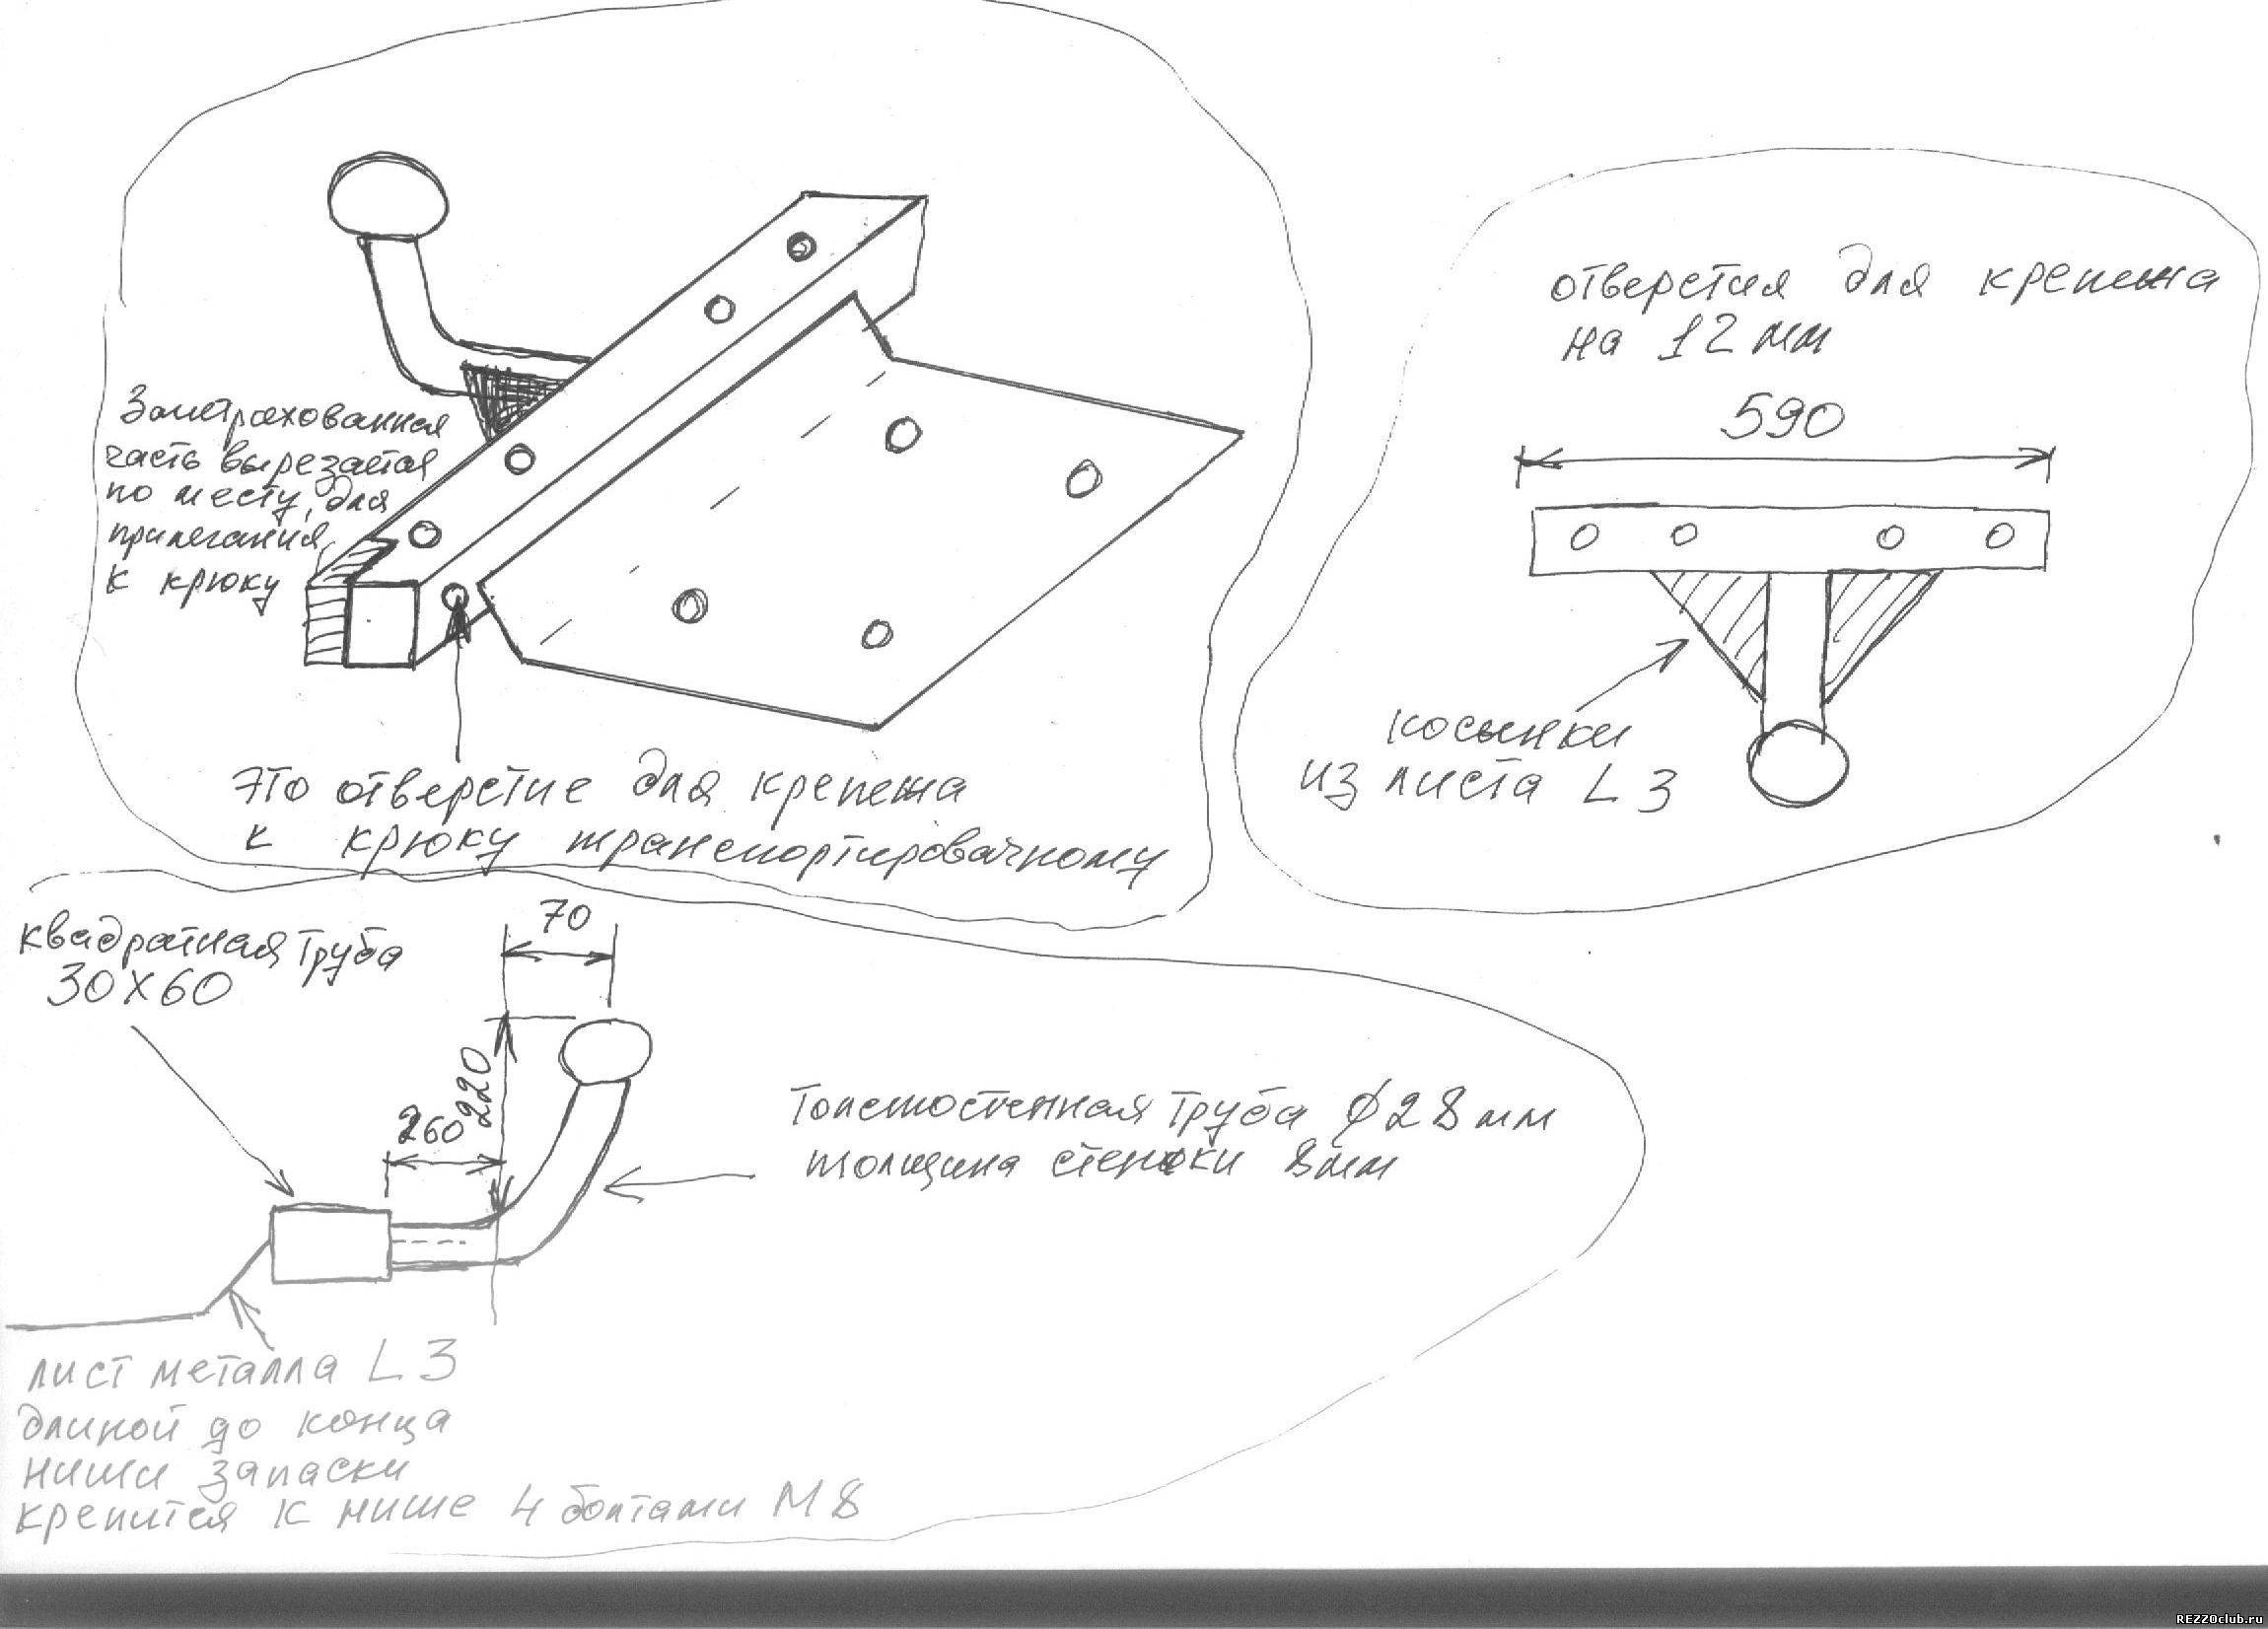 Заштрахованная
часть вырезается
по месту, для
прилегания
к крюку
это отверстие для крепежа
к крюку транспортировачному
отверстия для крепежа
на 12 мм
590
косынки
из листа L 3
квадратная труба
30X60
70
220
260
Толстостенная труба ϕ28мм
толщина стенки 8мм
лист металла L 3
длиной до конца
ниши запаски
крепится к нише 4 болтами М8
REZZOclub.ru